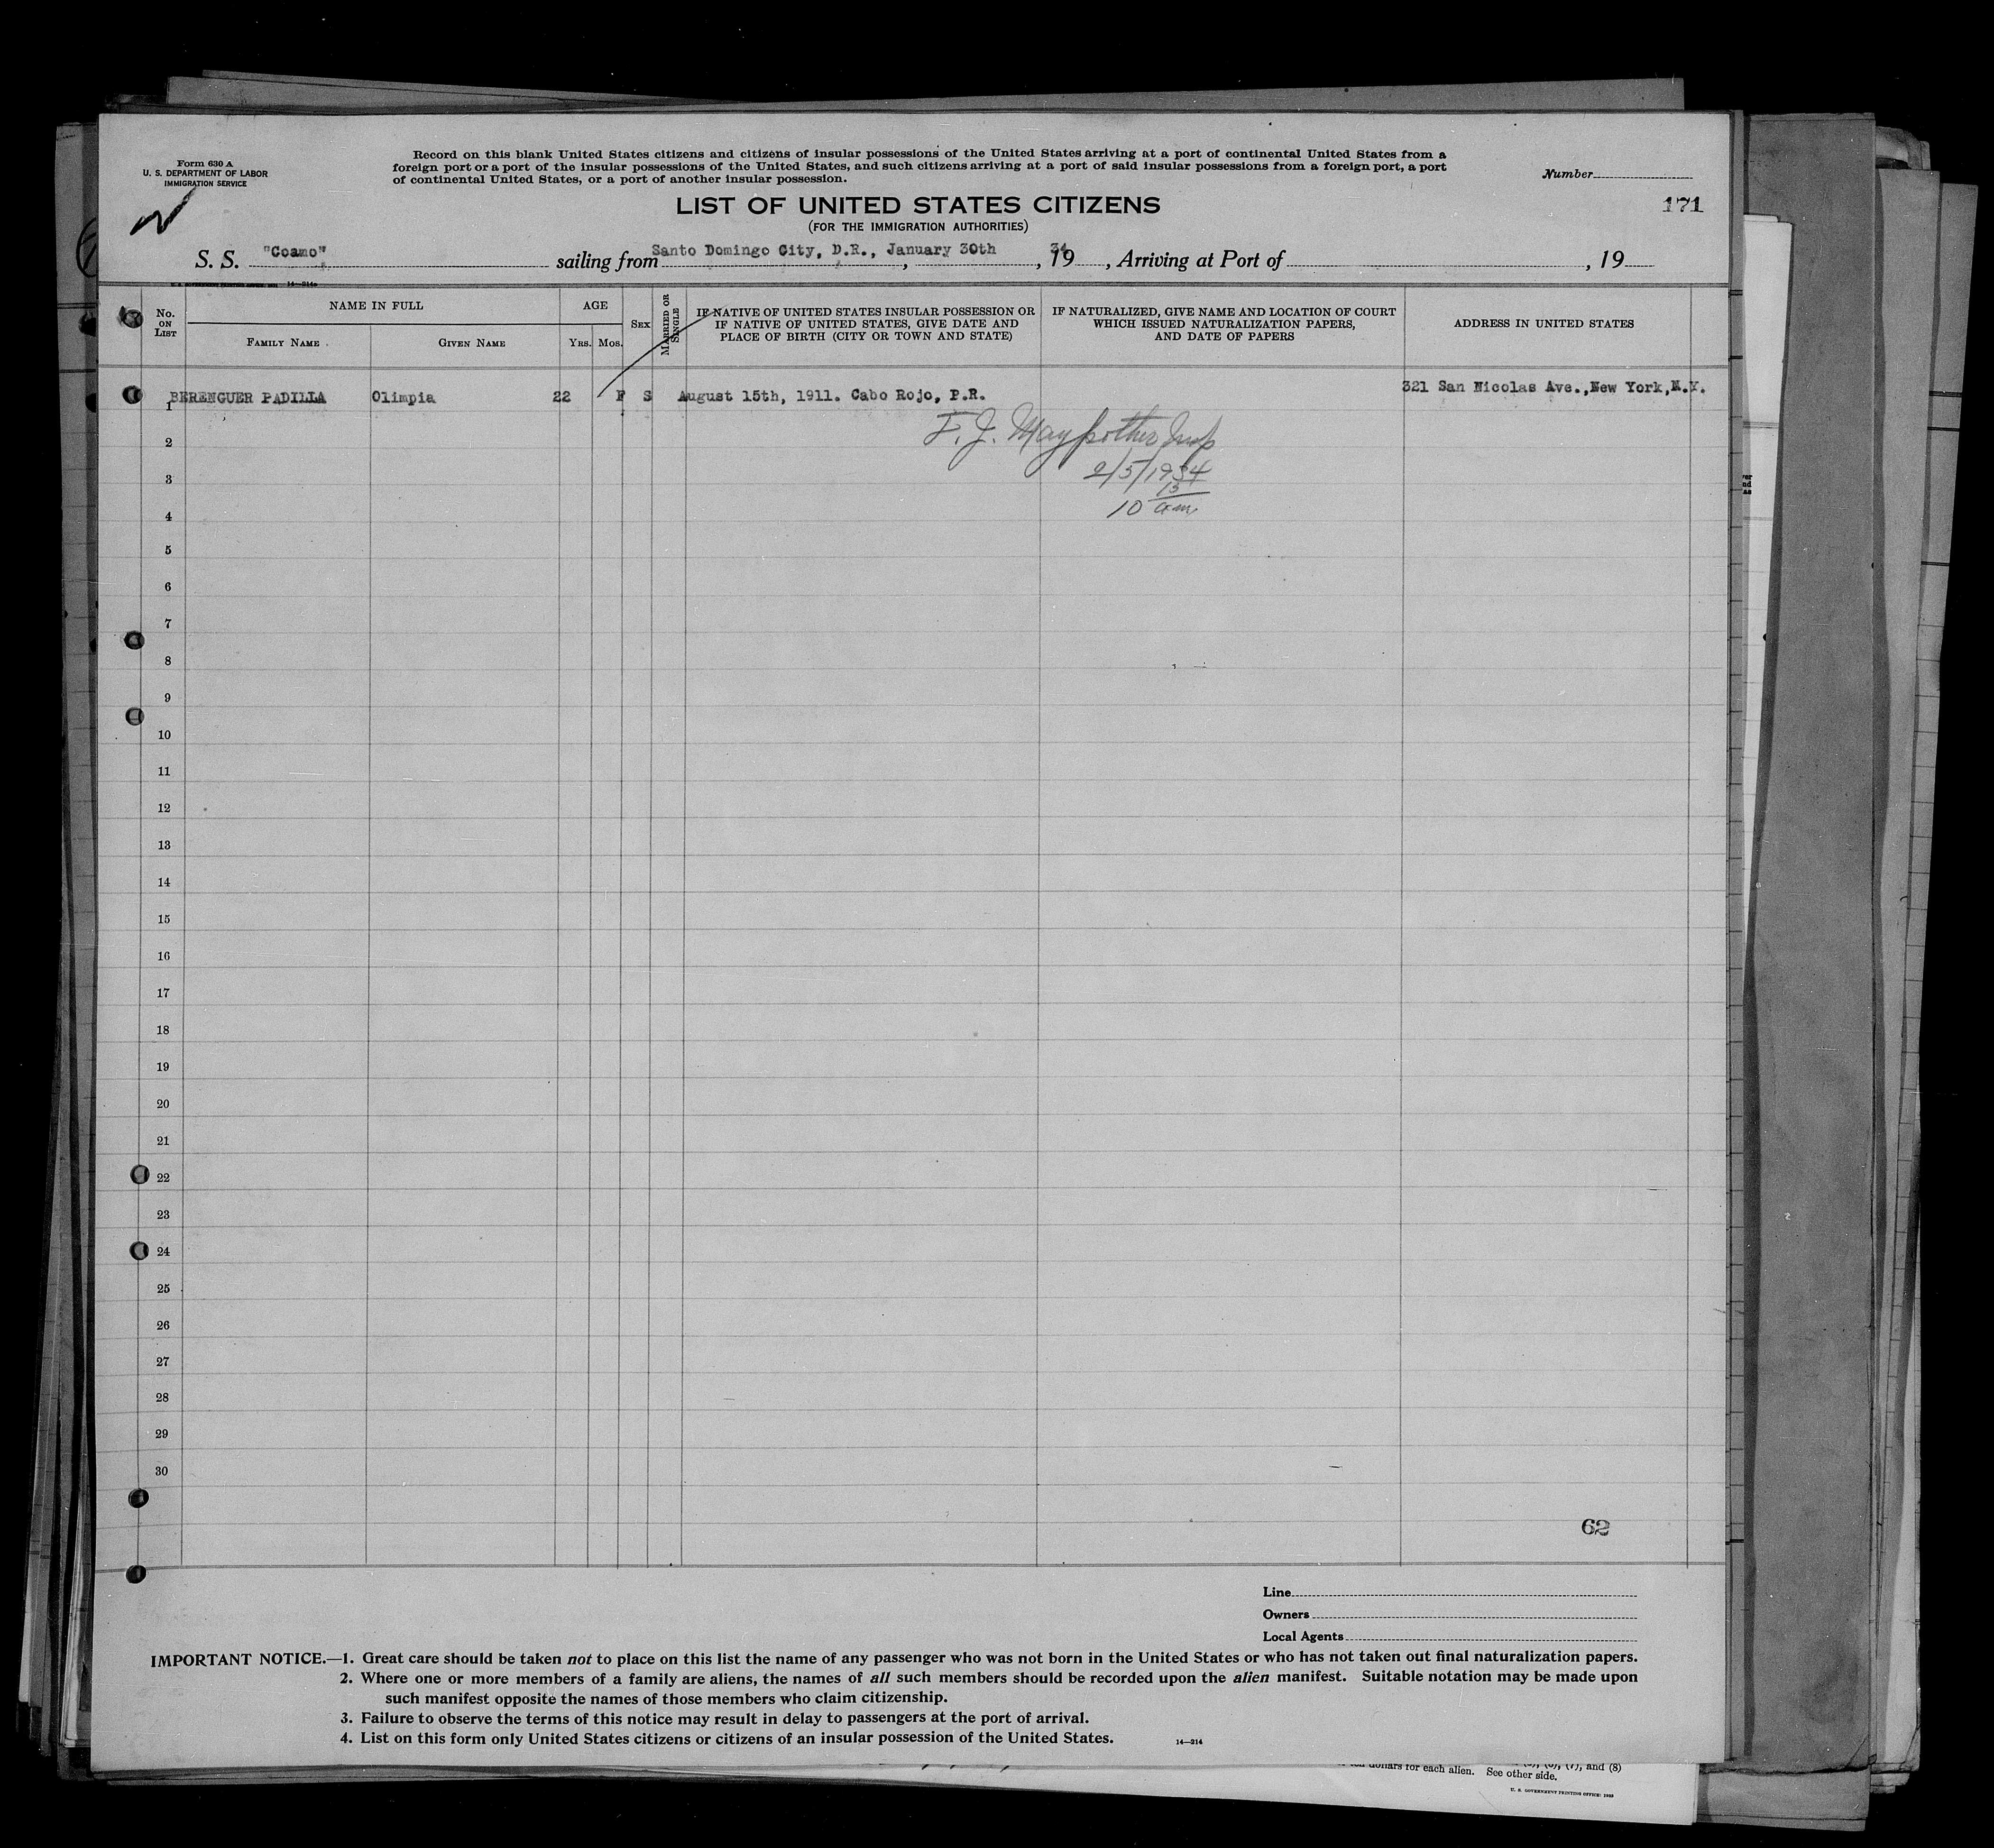 Form 630 A
U. S. DEPARTMENT OF LABOR
IMMIGRATION SERVICE
Record on this blank United States citizens and citizens of insular possessions of the United States arriving at a port of continental United States from a
foreign port or a port of the insular possessions of the United States, and such citizens arriving at a port of said insular possessions from a foreign port, a port
of continental United States, or a port of another insular possession.
Number
171
LIST OF UNITED STATES CITIZENS
(FOR THE IMMIGRATION AUTHORITIES)
S. S. "Coamo" sailing from Santo Domingo City, D.R., January 30th, 1934, Arriving at Port of , 19
No. ON LIST
NAME IN FULL
FAMILY NAME
GIVEN NAME
AGE
YRS. MOS.
SEX
MARRIED OR SINGLE
IF NATIVE OF UNITED STATES INSULAR POSSESSION OR
IF NATIVE OF UNITED STATES, GIVE DATE AND
PLACE OF BIRTH (CITY OR TOWN AND STATE)
IF NATURALIZED, GIVE NAME AND LOCATION OF COURT
WHICH ISSUED NATURALIZATION PAPERS,
AND DATE OF PAPERS
ADDRESS IN UNITED STATES
1 BERENGUER PADILLA Olimpia 22 F S August 15th, 1911. Cabo Rojo, P.R. 321 San Nicolas Ave.,New York,N.Y.
F. J. Maypother Insp
2
2/5/1934
3
10 15 am
4
5
6
7
8
9
10
11
12
13
14
15
16
17
18
19
20
21
22
23
24
25
26
27
28
29
30
62
Line
Owners
Local Agents
IMPORTANT NOTICE.—1. Great care should be taken not to place on this list the name of any passenger who was not born in the United States or who has not taken out final naturalization papers.
2. Where one or more members of a family are aliens, the names of all such members should be recorded upon the alien manifest. Suitable notation may be made upon
such manifest opposite the names of those members who claim citizenship.
3. Failure to observe the terms of this notice may result in delay to passengers at the port of arrival.
4. List on this form only United States citizens or citizens of an insular possession of the United States.
14—214
dollars for each alien. See other side.
U. S. GOVERNMENT PRINTING OFFICE